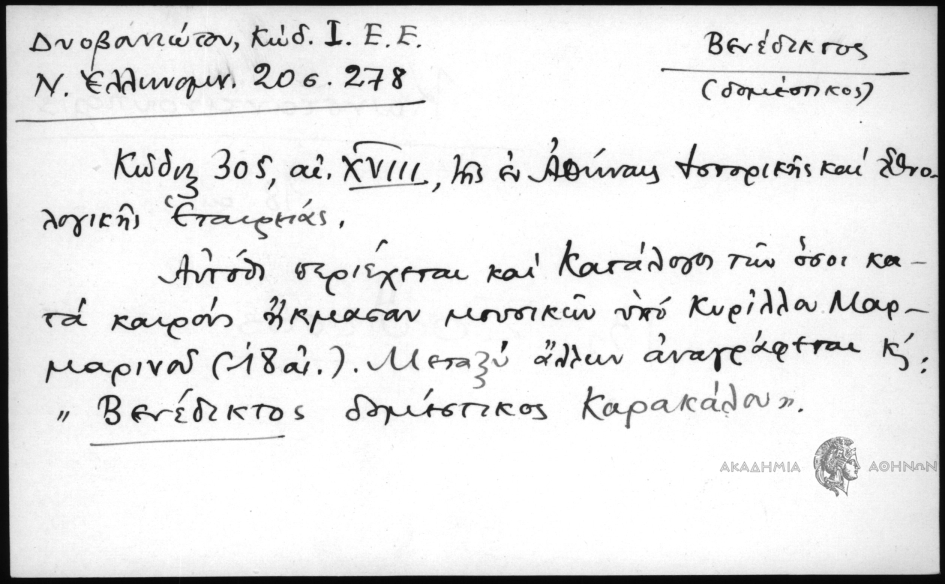 Δυοβουνιώτου, Κώδ. Ι. Ε. Ε.
Ν. Ἑλληνομν. 20 σ. 278
Βενέδικτος
(δομέστικος)
Κώδιξ 305, αἰ. XVIII, τῆς ἐν Ἀθήναις Ἱστορικῆς καὶ Ἐθνο-
λογικῆς Ἑταιρείας.
Αὐτόθι περιέχεται καὶ Κατάλογος τῶν ὅσοι κα-
τά καιρούς ἤκμασαν μουσικῶν ὑπό Κυρίλλου Μαρ-
μαρινοῦ (18 αἰ.). Μεταξύ ἄλλων ἀναγράφεται κ΄:
" Βενέδικτος δομέστικος Καρακάλου".
ΑΚΑΔΗΜΙΑ ΑΘΗΝΩΝ